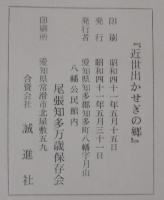 『近世出かせぎの郷』
印刷　昭和四十一年五月十五日
発行　昭和四十一年五月三十一日
発行者　愛知県知多郡知多町八幡字月山
八幡公民館内
尾張知多万歳保存会
印刷所　愛知県常滑市北屋敷五九
合資会社　誠進社